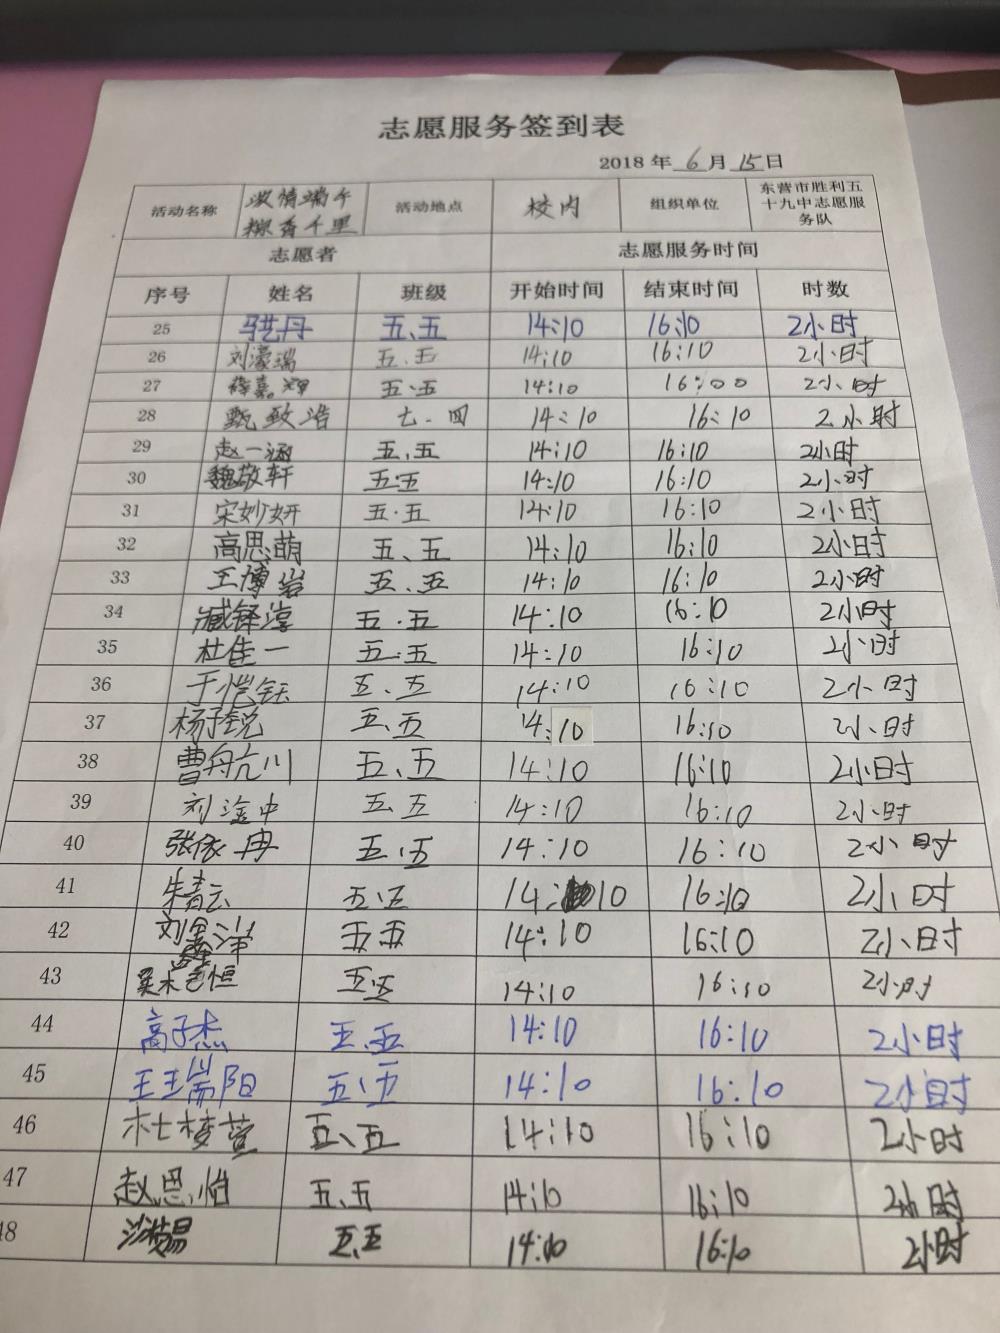 志愿服务签到表
2018 年 6 月 15 日
活动名称 浓情端午 粽香千里 活动地点 校内 组织单位 东营市胜利五十九中志愿服务队
志愿者 志愿服务时间
序号 姓名 班级 开始时间 结束时间 时数
25 五、五 14:10 16:10 2小时
26 刘濛瑞 五、五 14:10 16:10 2小时
27 五·五 14:10 16:00 2小时
28 甄致浩 七·四 14:10 16:10 2小时
29 赵一涵 五、五 14:10 16:10 2小时
30 魏敬轩 五·五 14:10 16:10 2小时
31 宋妙妍 五·五 14:10 16:10 2小时
32 高思萌 五、五 14:10 16:10 2小时
33 王博岩 五、五 14:10 16:10 2小时
34 臧铎淳 五·五 14:10 16:10 2小时
35 杜佳一 五·五 14:10 16:10 2小时
36 于恺钰 五、五 14:10 16:10 2小时
37 杨子锐 五、五 14:10 16:10 2小时
38 曹舟亢川 五、五 14:10 16:10 2小时
39 刘淦中 五、五 14:10 16:10 2小时
40 张依冉 五、五 14:10 16:10 2小时
41 朱青云 五·五 14:10 16:10 2小时
42 五五 14:10 16:10 2小时
43 五·五 14:10 16:10 2小时
44 高子杰 五、五 14:10 16:10 2小时
45 王瑞阳 五、五 14:10 16:10 2小时
46 五、五 14:10 16:10 2小时
47 赵恩怡 五、五 14:10 16:10 2小时
48 五、五 14:10 16:10 2小时